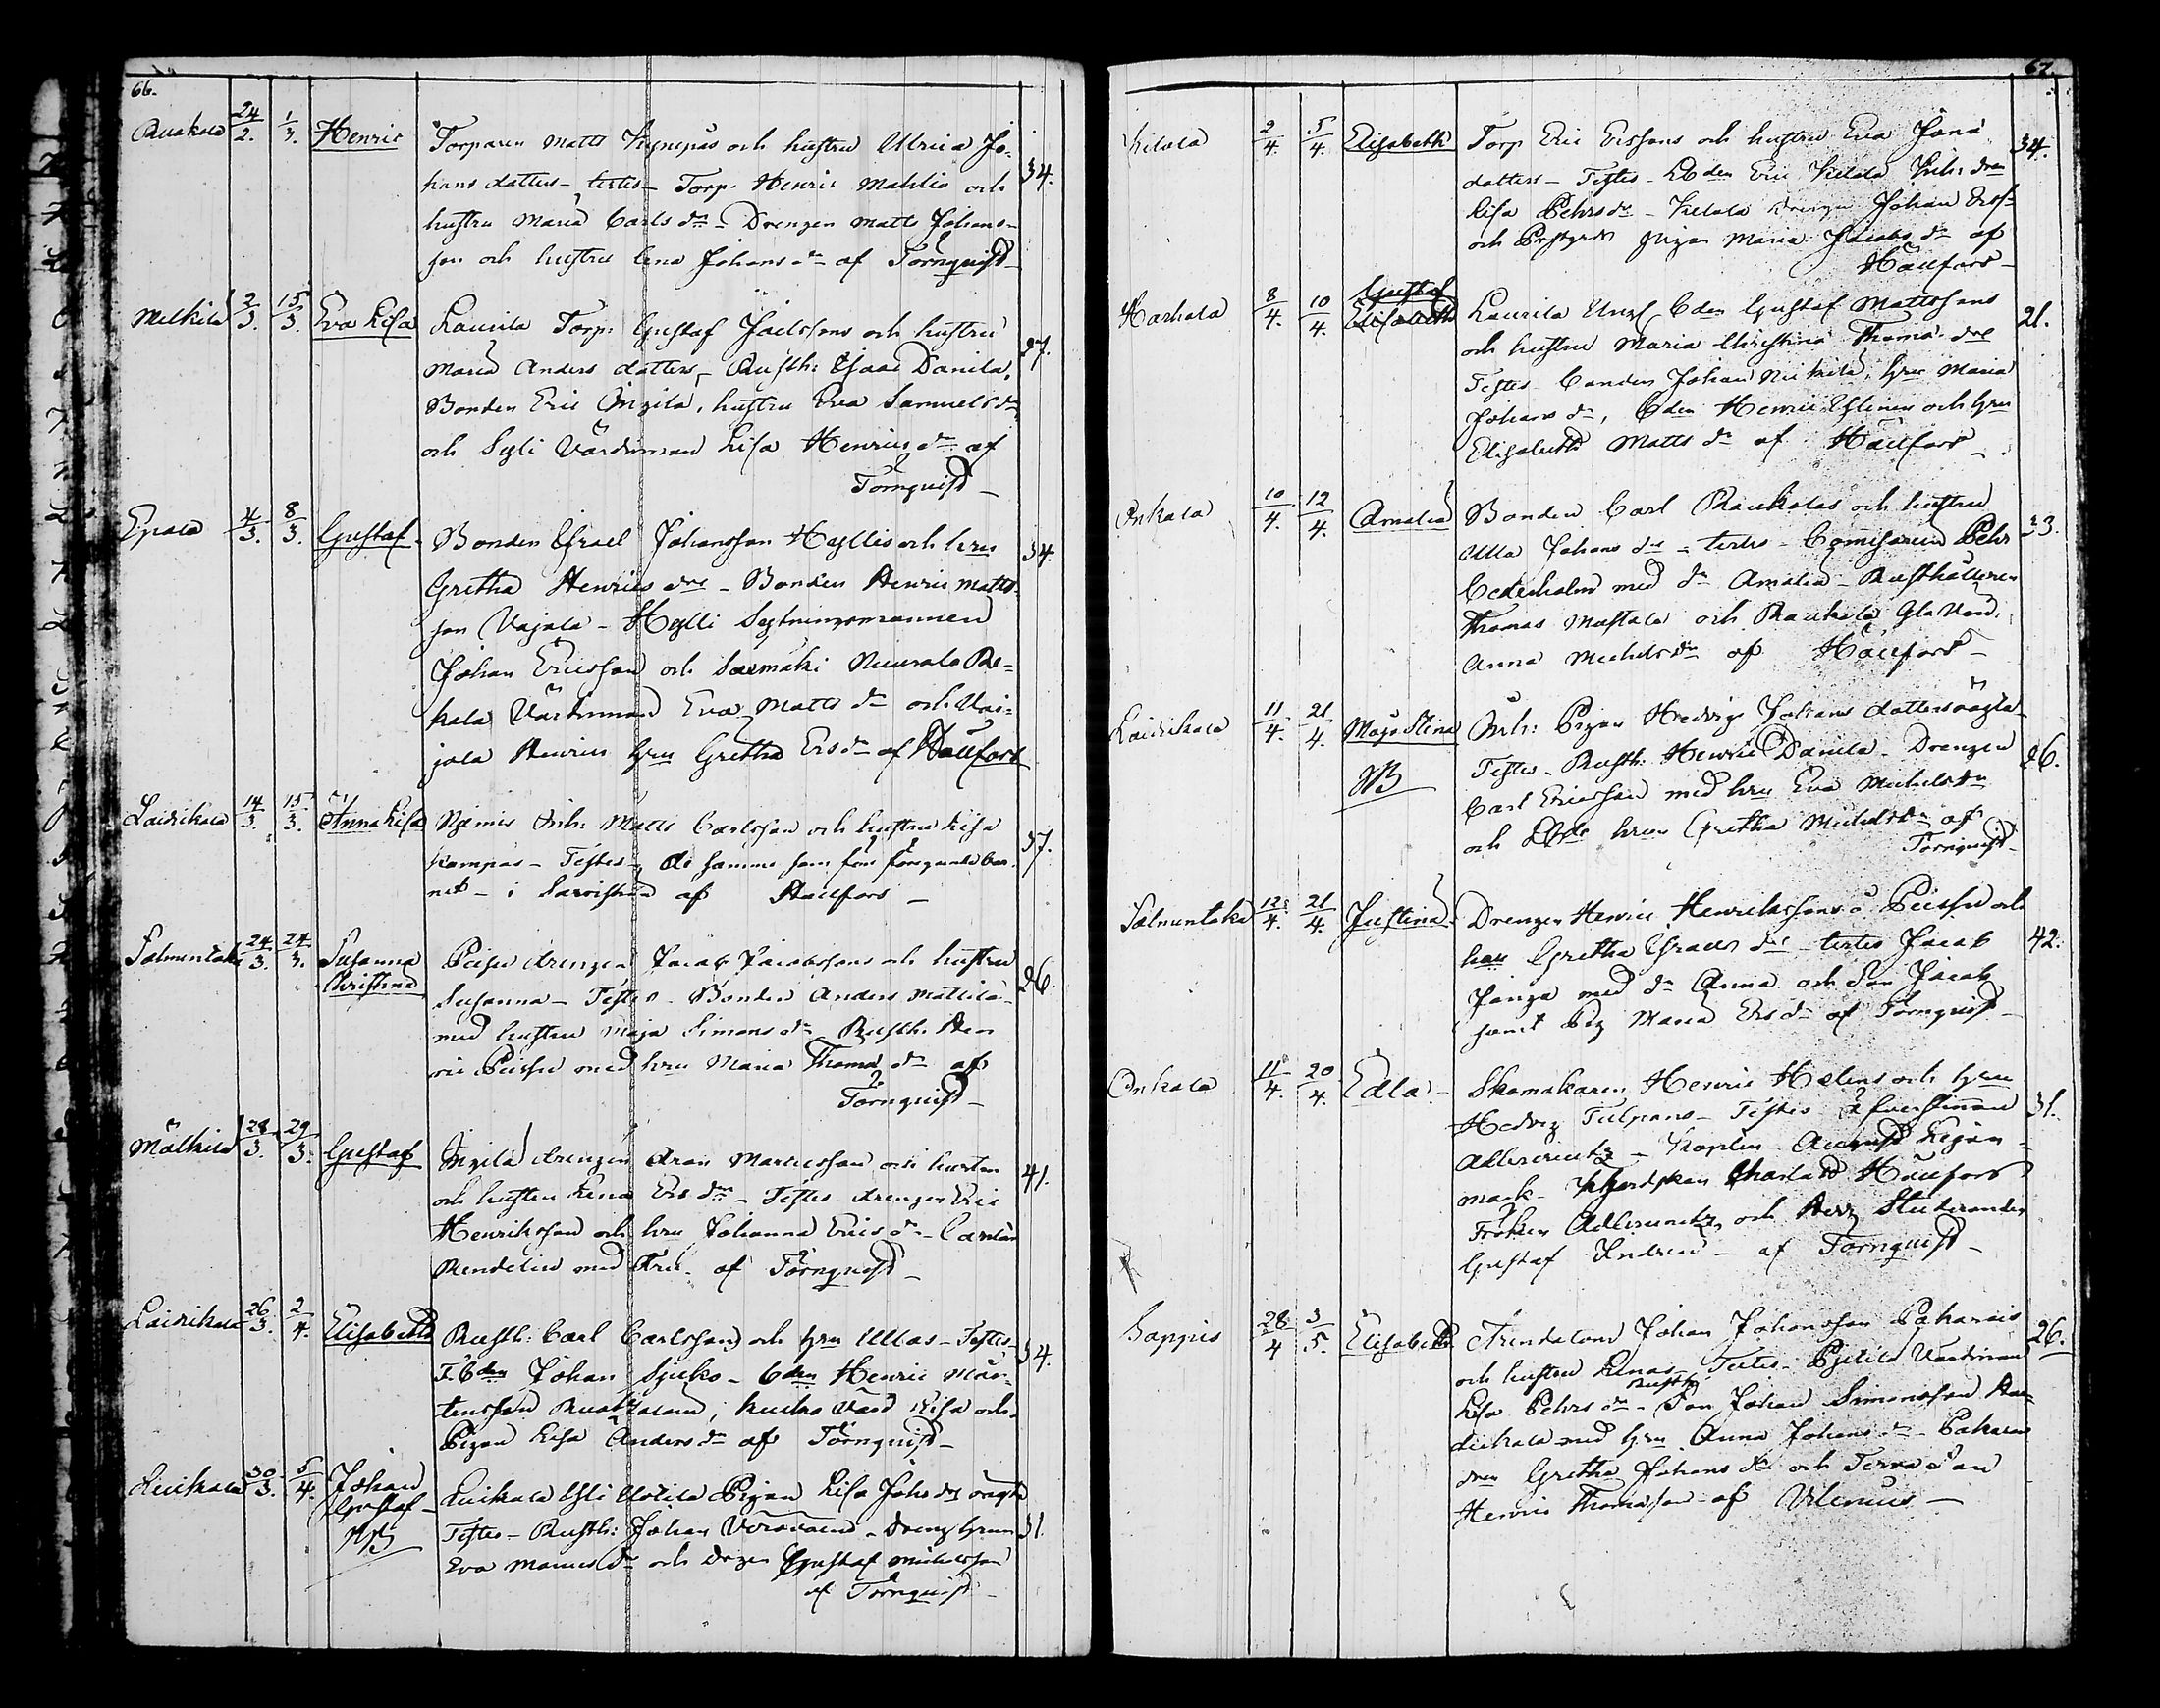 66.
Ruokola 24/2. 1/3. Henric Torparen Matts och hustru Ulrica Jo-
hans dotters – testes – Torp. Henric Mahlio och 34.
hustru Maria Carls dr – Drengen Matts Johans-
son och hustru Lena Johans dr af Törnqvist –
Melkila 2/3. 15/3. Eva Lisa Laurila Torp: Gustaf Joelssons och hustru
Maria Anders dotters – Rusth: Isaac Danila, 27.
Bonden Eric Ingila, hustru Eva Samuels dr
och Syli Värdinnan Lisa Henrics dr af
Törnqvist –
Epala 4/3. 8/3. Gustaf Bonden Israel Johansson Hyllis och hru 34.
Gretha Henrics drs – Bonden Henric Matts-
son Vajala – Hylli Sytningsmannen
Johan Ericsson och Saxmäki Re-
kala Värdinnan Eva Matts dr och Vai-
jala Henrics hru Gretha Ers dr af Hällfors
Laidikala 14/3. 15/3. Anna Lisa Inh: Matts Carlsson och hustru Lisa
Kampas – Testes – de samme som för föregående bar- 37.
net – i af Hällfors –
Salmentaka 24/3. 24/3. Susanna Peisu drengen Jacob Jacobssons och hustru
Christina Susanna – Testes – Bonden Anders Mattila 26.
med hustru Maja Simons dr – Rusth. Hen-
ric Peisu med hru Maria Thomæ dr af
Törnqvist –
Mälkilä 28/3. 29/3. Gustaf Ingila drengen Aron och
och hustru Lena Ers drs – Testes drengen Eric 41.
Henriksson och hru Johanna Erics dr –
Rendelin med Fru – af Törnqvist –
Laidikala 26/3. 2/4. Elisabeth Rusth: Carl Carlsson och hru Ullas – Testes –
F. Bden Johan Sjuko – Bden Henric Mår- 34.
tensson Lisa och
Pigan Lisa Anders dr af Törnqvist –
Luikala 30/3. 5/4. Johan Luikala Pigan Lisa Johs drs oägta
Gustaf – Testes – Rusth: Johan – Dreng hrun 31.
NB Eva dr och drgen Gustaf Michelsson
af Törnqvist –
67.
Kilala 2/4. 5/4. Elisabeth Torp Eric Erssons och hustru Eva Jona 34.
dotters – Testes – Bden Eric Kilala drn
Lisa Pehrs dr – Kilala drengen Johan Erss-
och pigan Maria Jacobs dr af
Hällfors –
Gustaf
Harhala 8/4. 10/4. Elisabeth Laurila Bden Gustaf Mattssons 21.
och hustru Maria Christina Thomæ drs
Testes – Bonden Johan hru Maria
Johans dr, Bden Henric och hru
Elisabeth Matts dr af Hällfors –
Onkala 10/4. 12/4. Amalia Bonden Carl Raukalas och hustru
Ulla Johans drs – testes – Commisarien Pehr 23.
Cederholm med dr Amalia – Rusthållaren
Thomas Mustala och Raukala Gla Värd.
Anna Michels dr af Hällfors –
Laidikala 11/4. 21/4. Maja Stina Inh: Pigan Hedvig Johans dotters oägta
NB Testes – Rusth: Henric Danila – Drengen 26.
Carl Ericsson med hru Eva Michels dr
och hru Gretha Michels dr af
Törnqvist –
Salmentaka 12/4. 21/4. Justina Drengen Henric Henrikssons å Peissu och
hru Gretha Israels drs – testes Jacob 42.
Janza med dr Anna och Son Jacob
samt Pig Maria Ers dr af Törnqvist –
Onkala 11/4. 20/4. Edla – Skomakaren Henric Helins och hru
Hedvig Tulpans – Testes Öfverstinnan 31.
Adlercreutz – Kaplan August Lejon-
mark – Charlotta Hällfors
Fröken Adlercreutz och Herr Studeranden
Gustaf Indren – af Törnqvist –
Sappis 28/4 3/5. Elisabeth Arendatorn Johan Johansson Paharais 26.
och hustru Lenas – Testes – Värdinnan
Rusth.
Lisa Pehrs dr – Son Johan Simonsson
med hru Anna Johans dr –
dren Gretha Johans dr och Son
Henric Thomasson – af Vilenius –